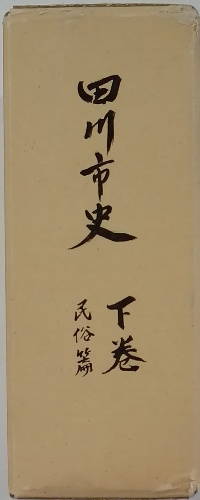 田川市史
下巻
民俗篇